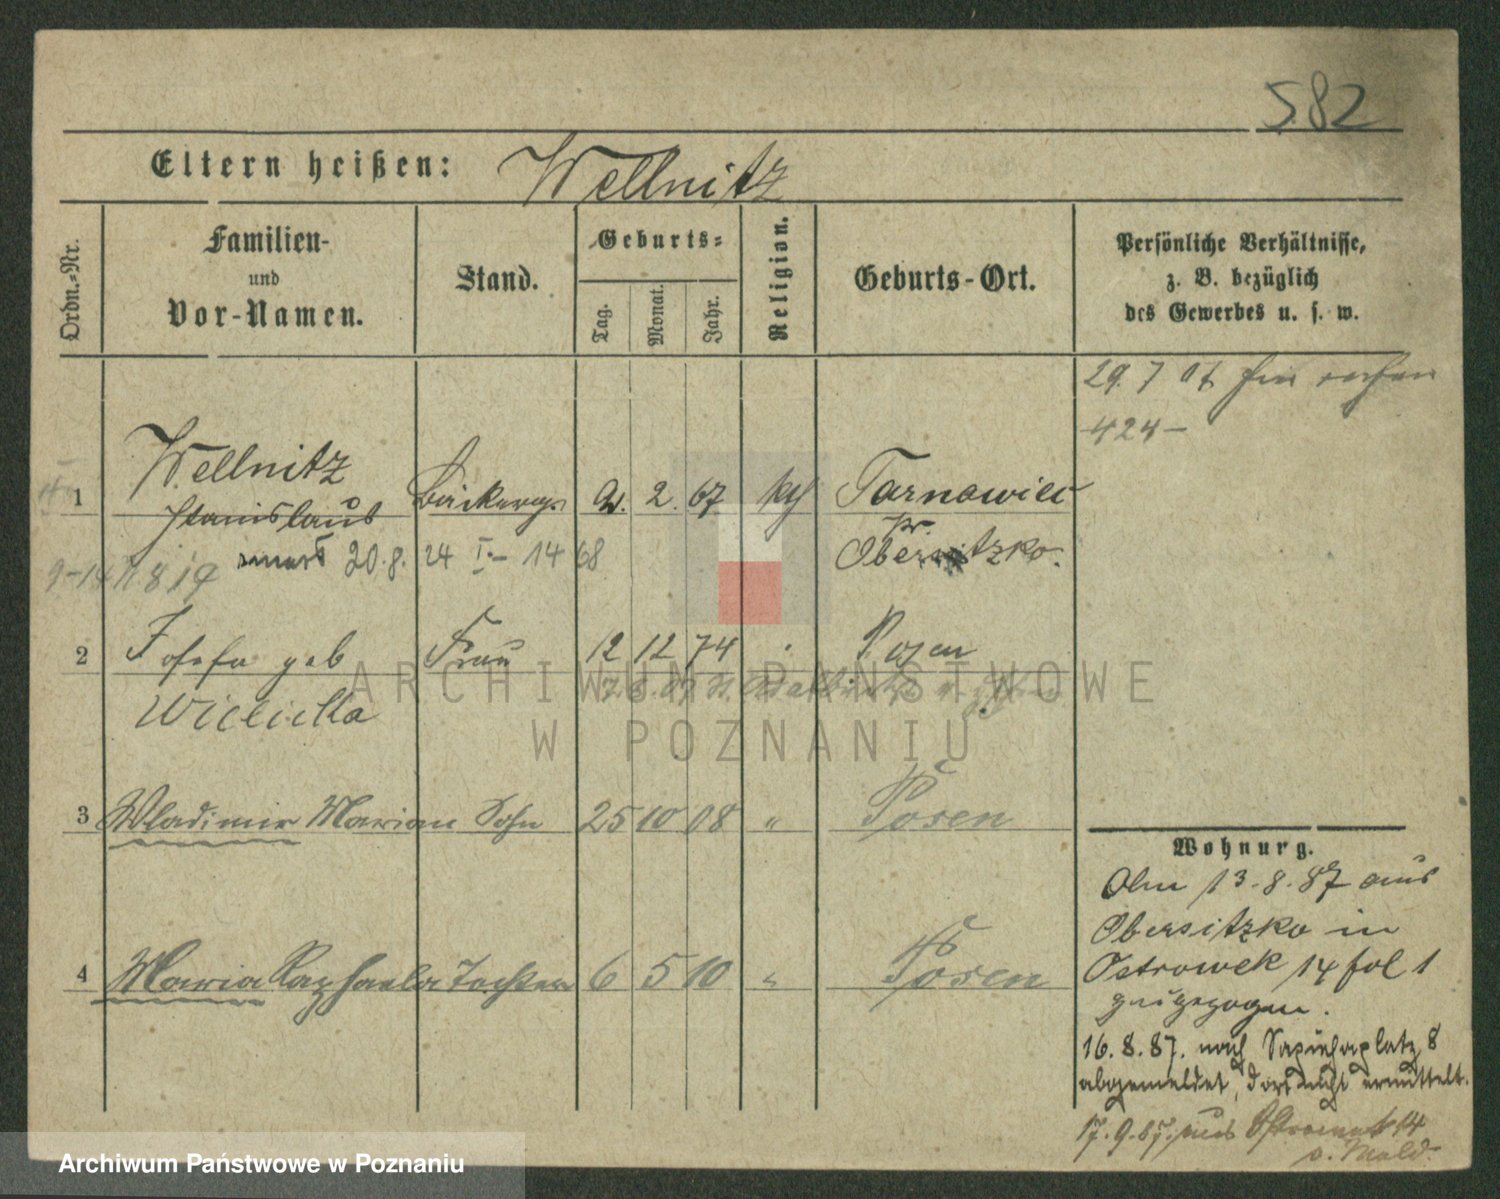 582
Eltern heißen: Wellnitz
Ordn.-Nr.
Familien-
und
Vor-Namen.
Stand.
Geburts-
Tag.
Monat.
Jahr.
Religion.
Geburts-Ort.
Persönliche Verhältnisse,
z. B. bezüglich
des Gewerbes u. s. w.
29. 7 07
424-
1 Wellnitz
Stanislaus Bäckerges 2. 67 kth Tarnowiec
pr.
Obersitzko.
zmarł 20.8. 24 I - 14 68
2 Josefa geb Frau 12 12 74 Posen
3 Wladimir Marian Sohn 25 10 08 " Posen
4 Maria Raphaela Tochter 6 5 10 " Posen
Wohnung.
13. 8. 87 aus
Obersitzko in
Ostrowek 14 fol 1
zugezogen.
16. 8. 87. nach Sapiehaplatz 8
abgemeldet, dort nicht ermittelt.
17. 9. 87. aus Ostrowek 14
ARCHIWUM PAŃSTWOWE
W POZNANIU
Archiwum Państwowe w Poznaniu